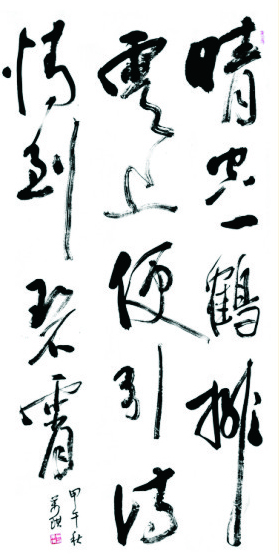 晴空一鶴排
雲上便引诗
情到碧霄
甲午秋